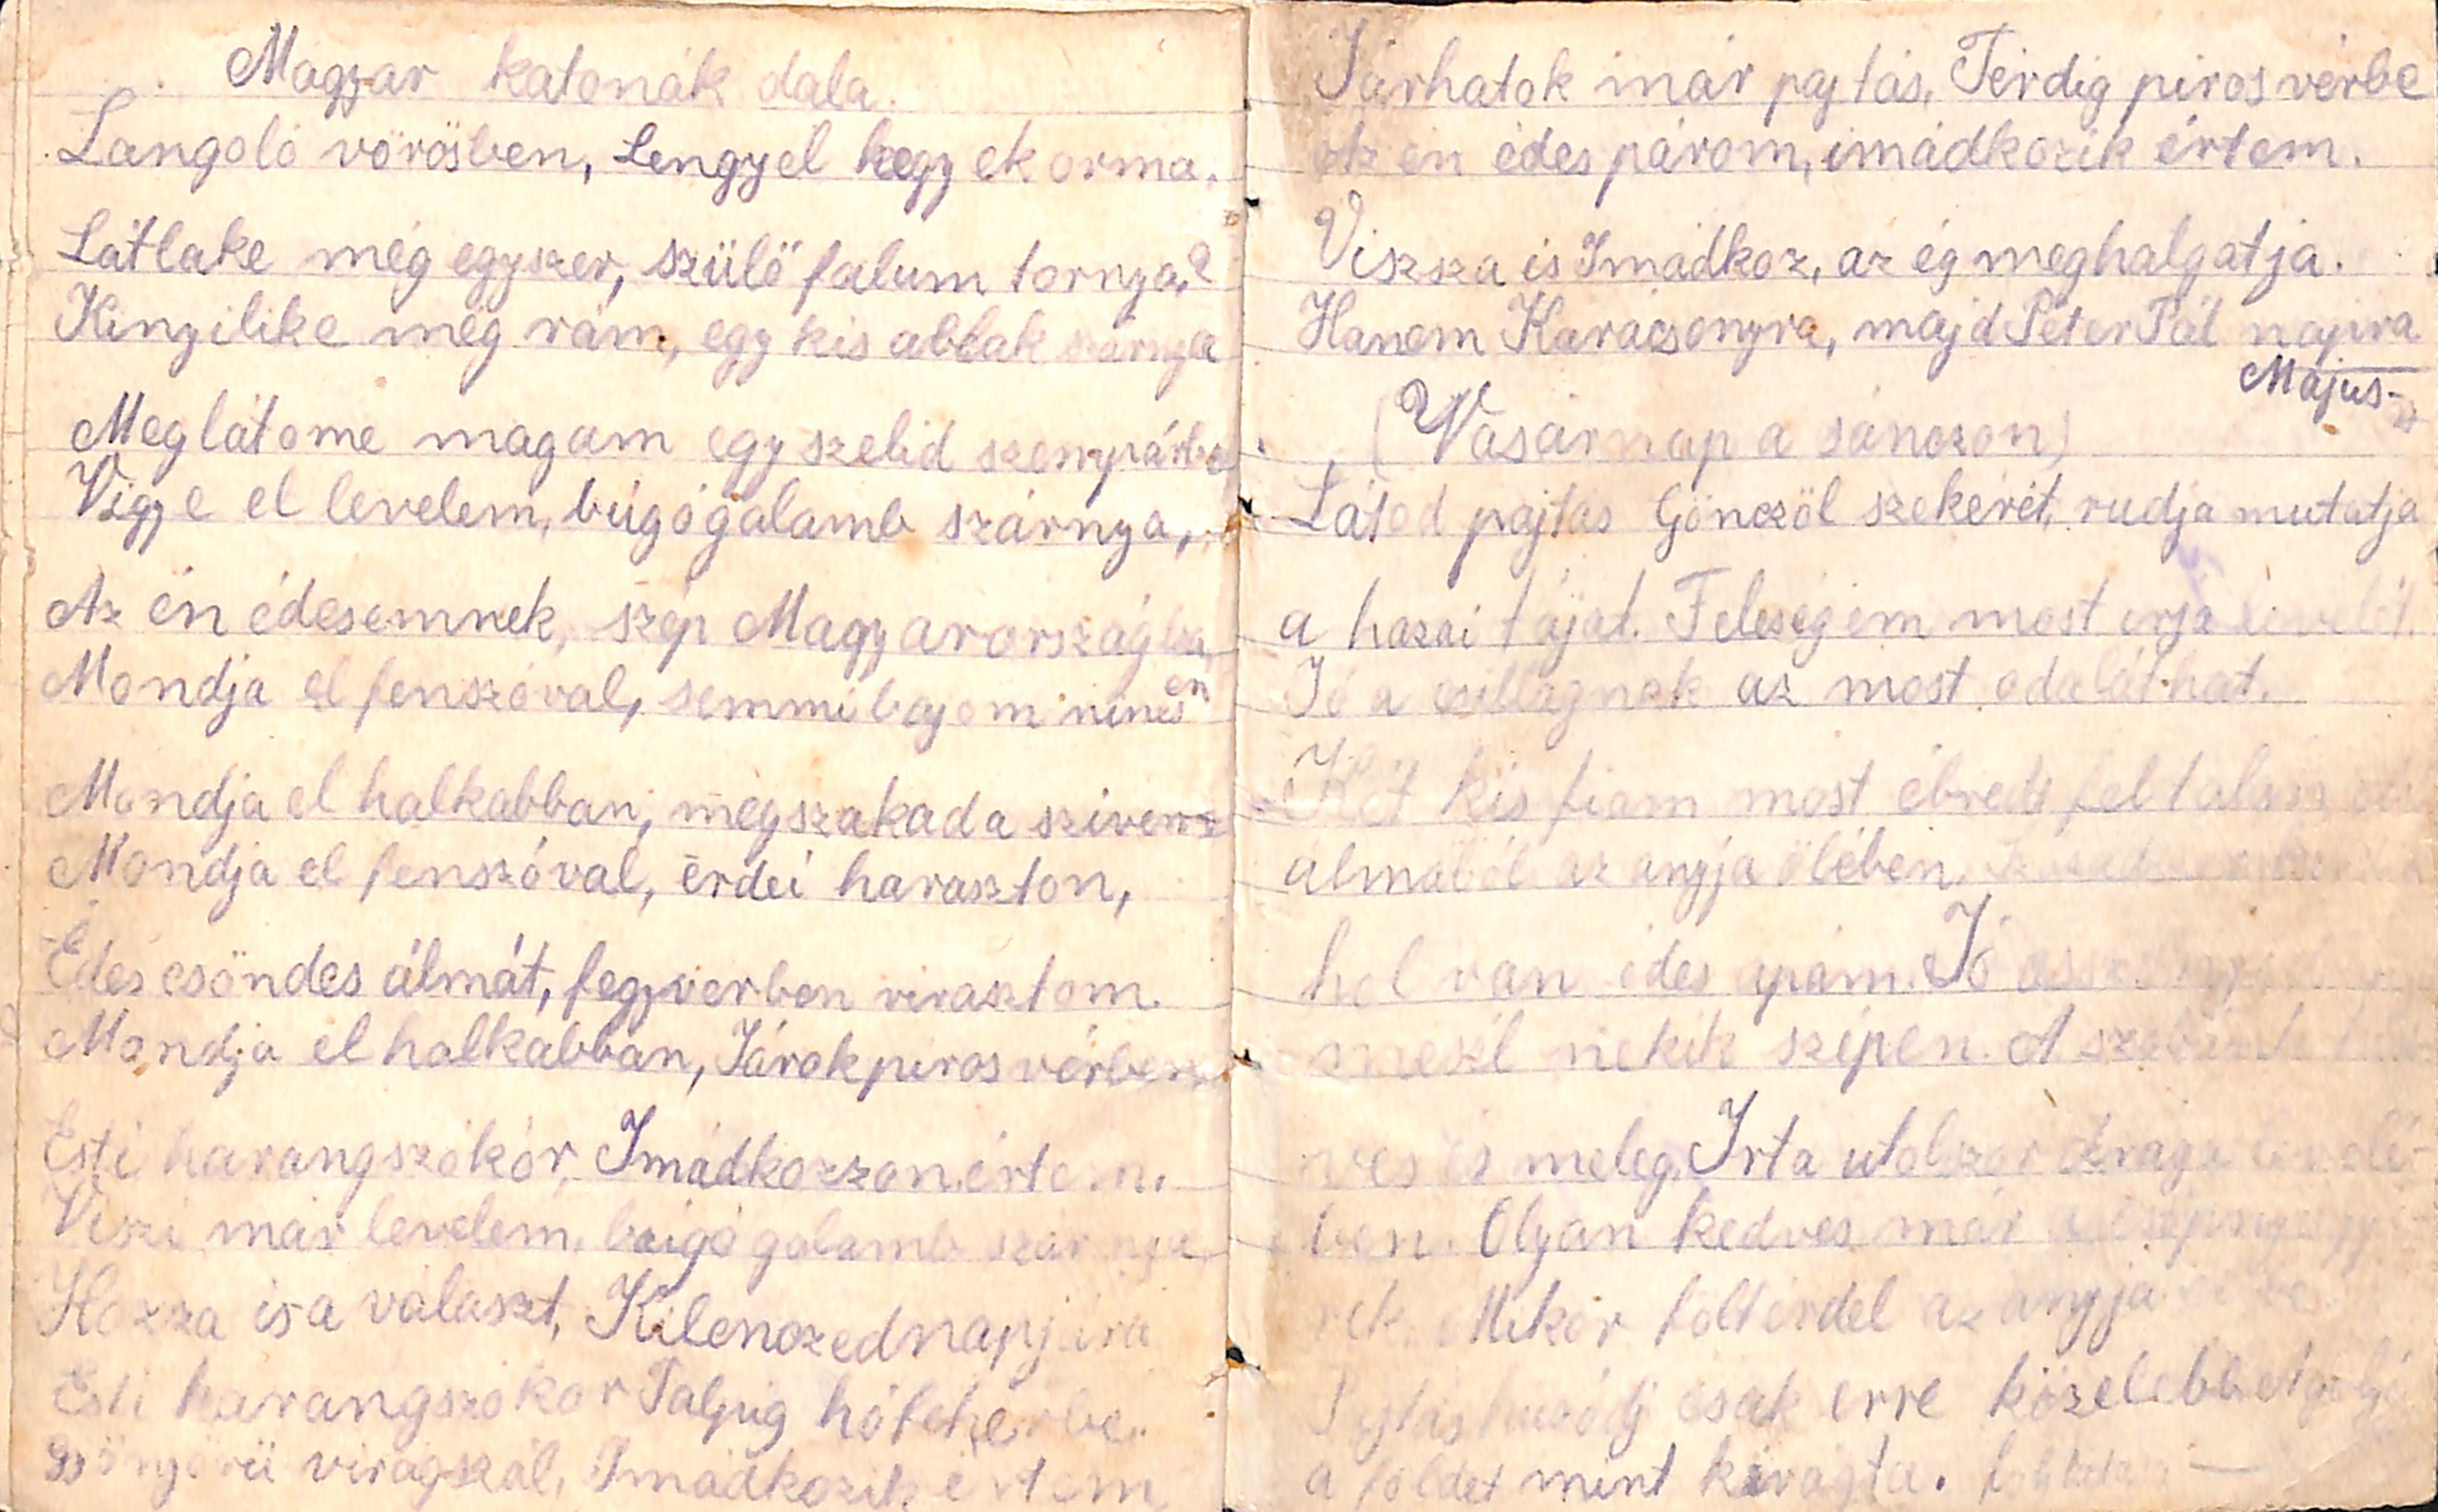 Magyar katonák dala.
Langoló vörösben, Lengyel hegyek orma.
Látlake még egyszer, szülő falum tornya?
Kinyilike még rám, egy kis ablak szárnya
Meglátome magam egy szelid szempárba
Vigye el levelem, búgó galamb szárnya,
Az én édesemnek, szép Magyarországba,
Mondja el fenszóval, semmi bajom nincsen
Mondja el halkabban, megszakad a szivem
Mondja el fenszóval, érdei haraszton,
Édes csöndes álmát, fegyverben virasztom.
Mondja el halkabban, Járok piros vérben
Esti harangszókór, Imádkozzon értem.
Viszi már levelem, búgó galamb szárnya
Hozza is a választ, Kilenczednapjára
Esti harangszókor Talpig hófehérbe.
Gyönyörü virágszál, Imádkozik értem
Járhatok már pajtás, Térdig piros vérbe
Az én édes párom, imádkozik értem.
Viszsza is Imádkoz, az ég meghalgatja.
Hanem Karácsonyra, majd Péter Pál napra
Május-
(Vasárnap a sánczon)
Látod pajtás Gönczöl szekerét, rudja mutatja
a hazai tájat. Feleségem most irja levelét.
Jó a csillagnak az most odaláthat.
Két kis fiam most ébredt fel talán
álmából az anyja ölében.
hol van édes apám. Jó
mesél nekik szépen. A
és meleg. Irta utolszor drága levelé-
ben. Olyan kedves már a
Mikor föltérdel az anyja
Pajtás huzódj csak erre közelebb
a földet mint kivágta.